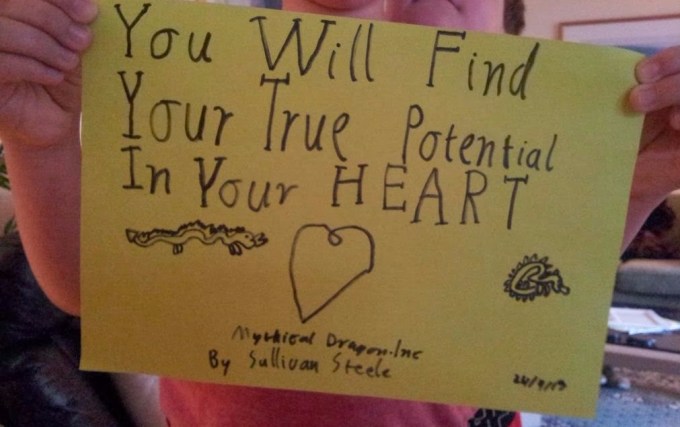 You Will Find
Your True Potential
In Your HEART
Mythical Dragon.Inc
By Sullivan Steele